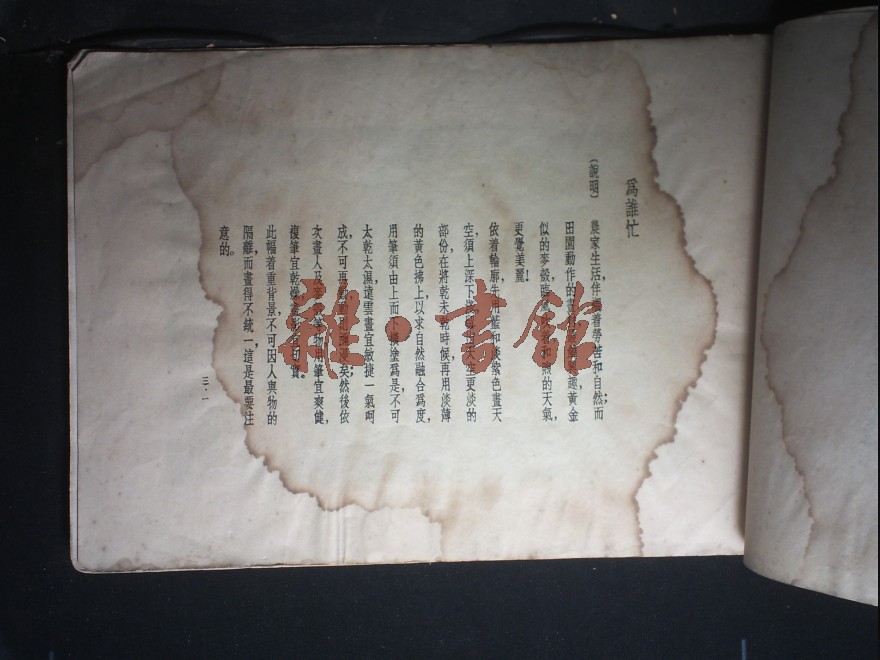 為誰忙
(說明)
農家生活,伴着勞苦和自然;而
田園動作的畫趣,黃金
似的麥穀,臨和煦的天氣,
更覺美麗!
依着輪廓,先用藍和淡紫色畫天
空,須上深下天空更淡的
部份,在將乾未乾時候,再用淡薄
的黃色拂上,以求自然融合為度,
用筆須由上而下橫塗為是,不可
太乾太濕,遠雲畫宜敏捷一氣呵
成,不可再矣;然後依
次畫人及等物,用筆宜爽健,
複筆宜乾燥,宜切實。
此幅着重背景,不可因人與物的
隔離,而畫得不統一,這是最要注
意的。
三·一
雅·書館